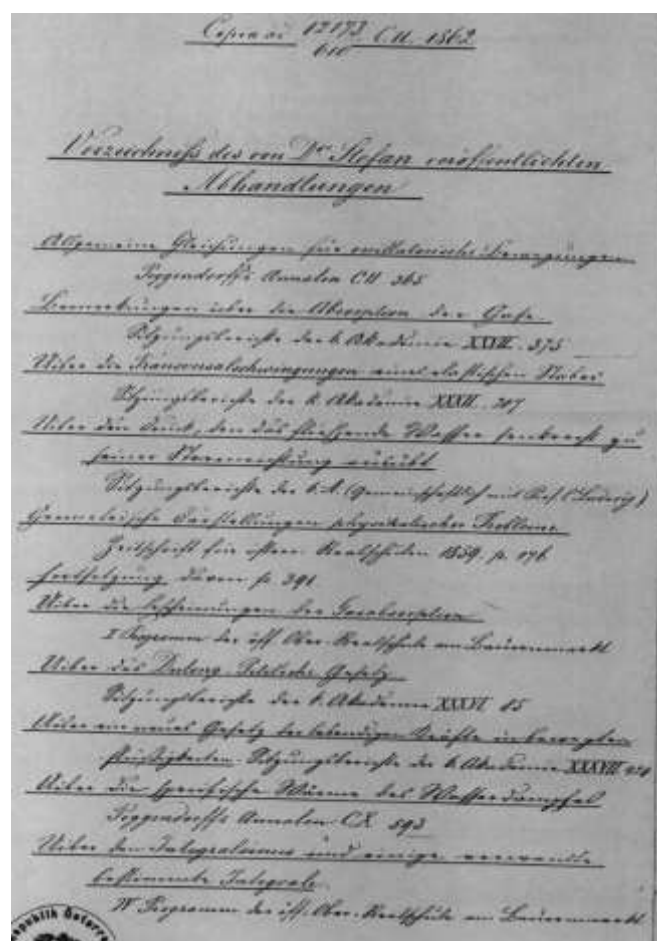 Copia ad 12173/610 C.U. 1862
Verzeichniß des von Dr. Stefan veröffentlichten
Abhandlungen
Allgemeine Gleichungen für oscillatorische Bewegungen
Poggendorffs Annalen CII 365
Bemerkungen über die Absorption der Gase
Sitzungsberichte der k. Akademie XXVII. 375
Uiber die Transversalschwingungen eines elastischen Stabes
Sitzungsberichte der k. Akademie XXXII. 207
Uiber den Druck, den das fließende Wasser senkrecht zu
seiner Stromrichtung ausübt
Sitzungsberichte der k. A. (gemeinschaftlich mit Prof. Ludwig)
Geometrische Darstellungen physikalischer Probleme
Zeitschrift für österr. Realschulen 1859. p. 176
Fortsetzung davon p. 291
Uiber die Erscheinungen der Gasabsorption
I Programm der öff. Ober-Realschule am Bauernmarkt
Uiber das Dulong Petitsche Gesetz
Sitzungsberichte der k. Akademie XXXVI 85
Uiber ein neues Gesetz der lebendigen Kräfte in bewegten
Flüssigkeiten. Sitzungsberichte der k. Akademie XXXVII 420
Uiber die spezifische Wärme des Wasserdampfes
Poggendorffs Annalen CX 593
Uiber den und einige verwandte
bestimmte Integrale.
IV Programm der öff. Ober-Realschule am Bauernmarkt
epublik Österre